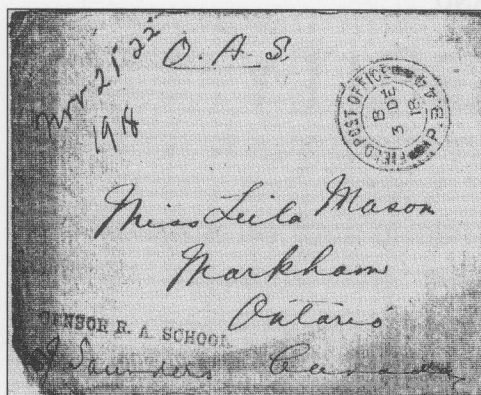 Nov 21 22
1918
O.A.S.
FIELD POST OFFICE
P.B.44
3 DE
18
Miss Leila Mason
Markham
Ontario
CENSOR R. A. SCHOOL
J Saunders Canada